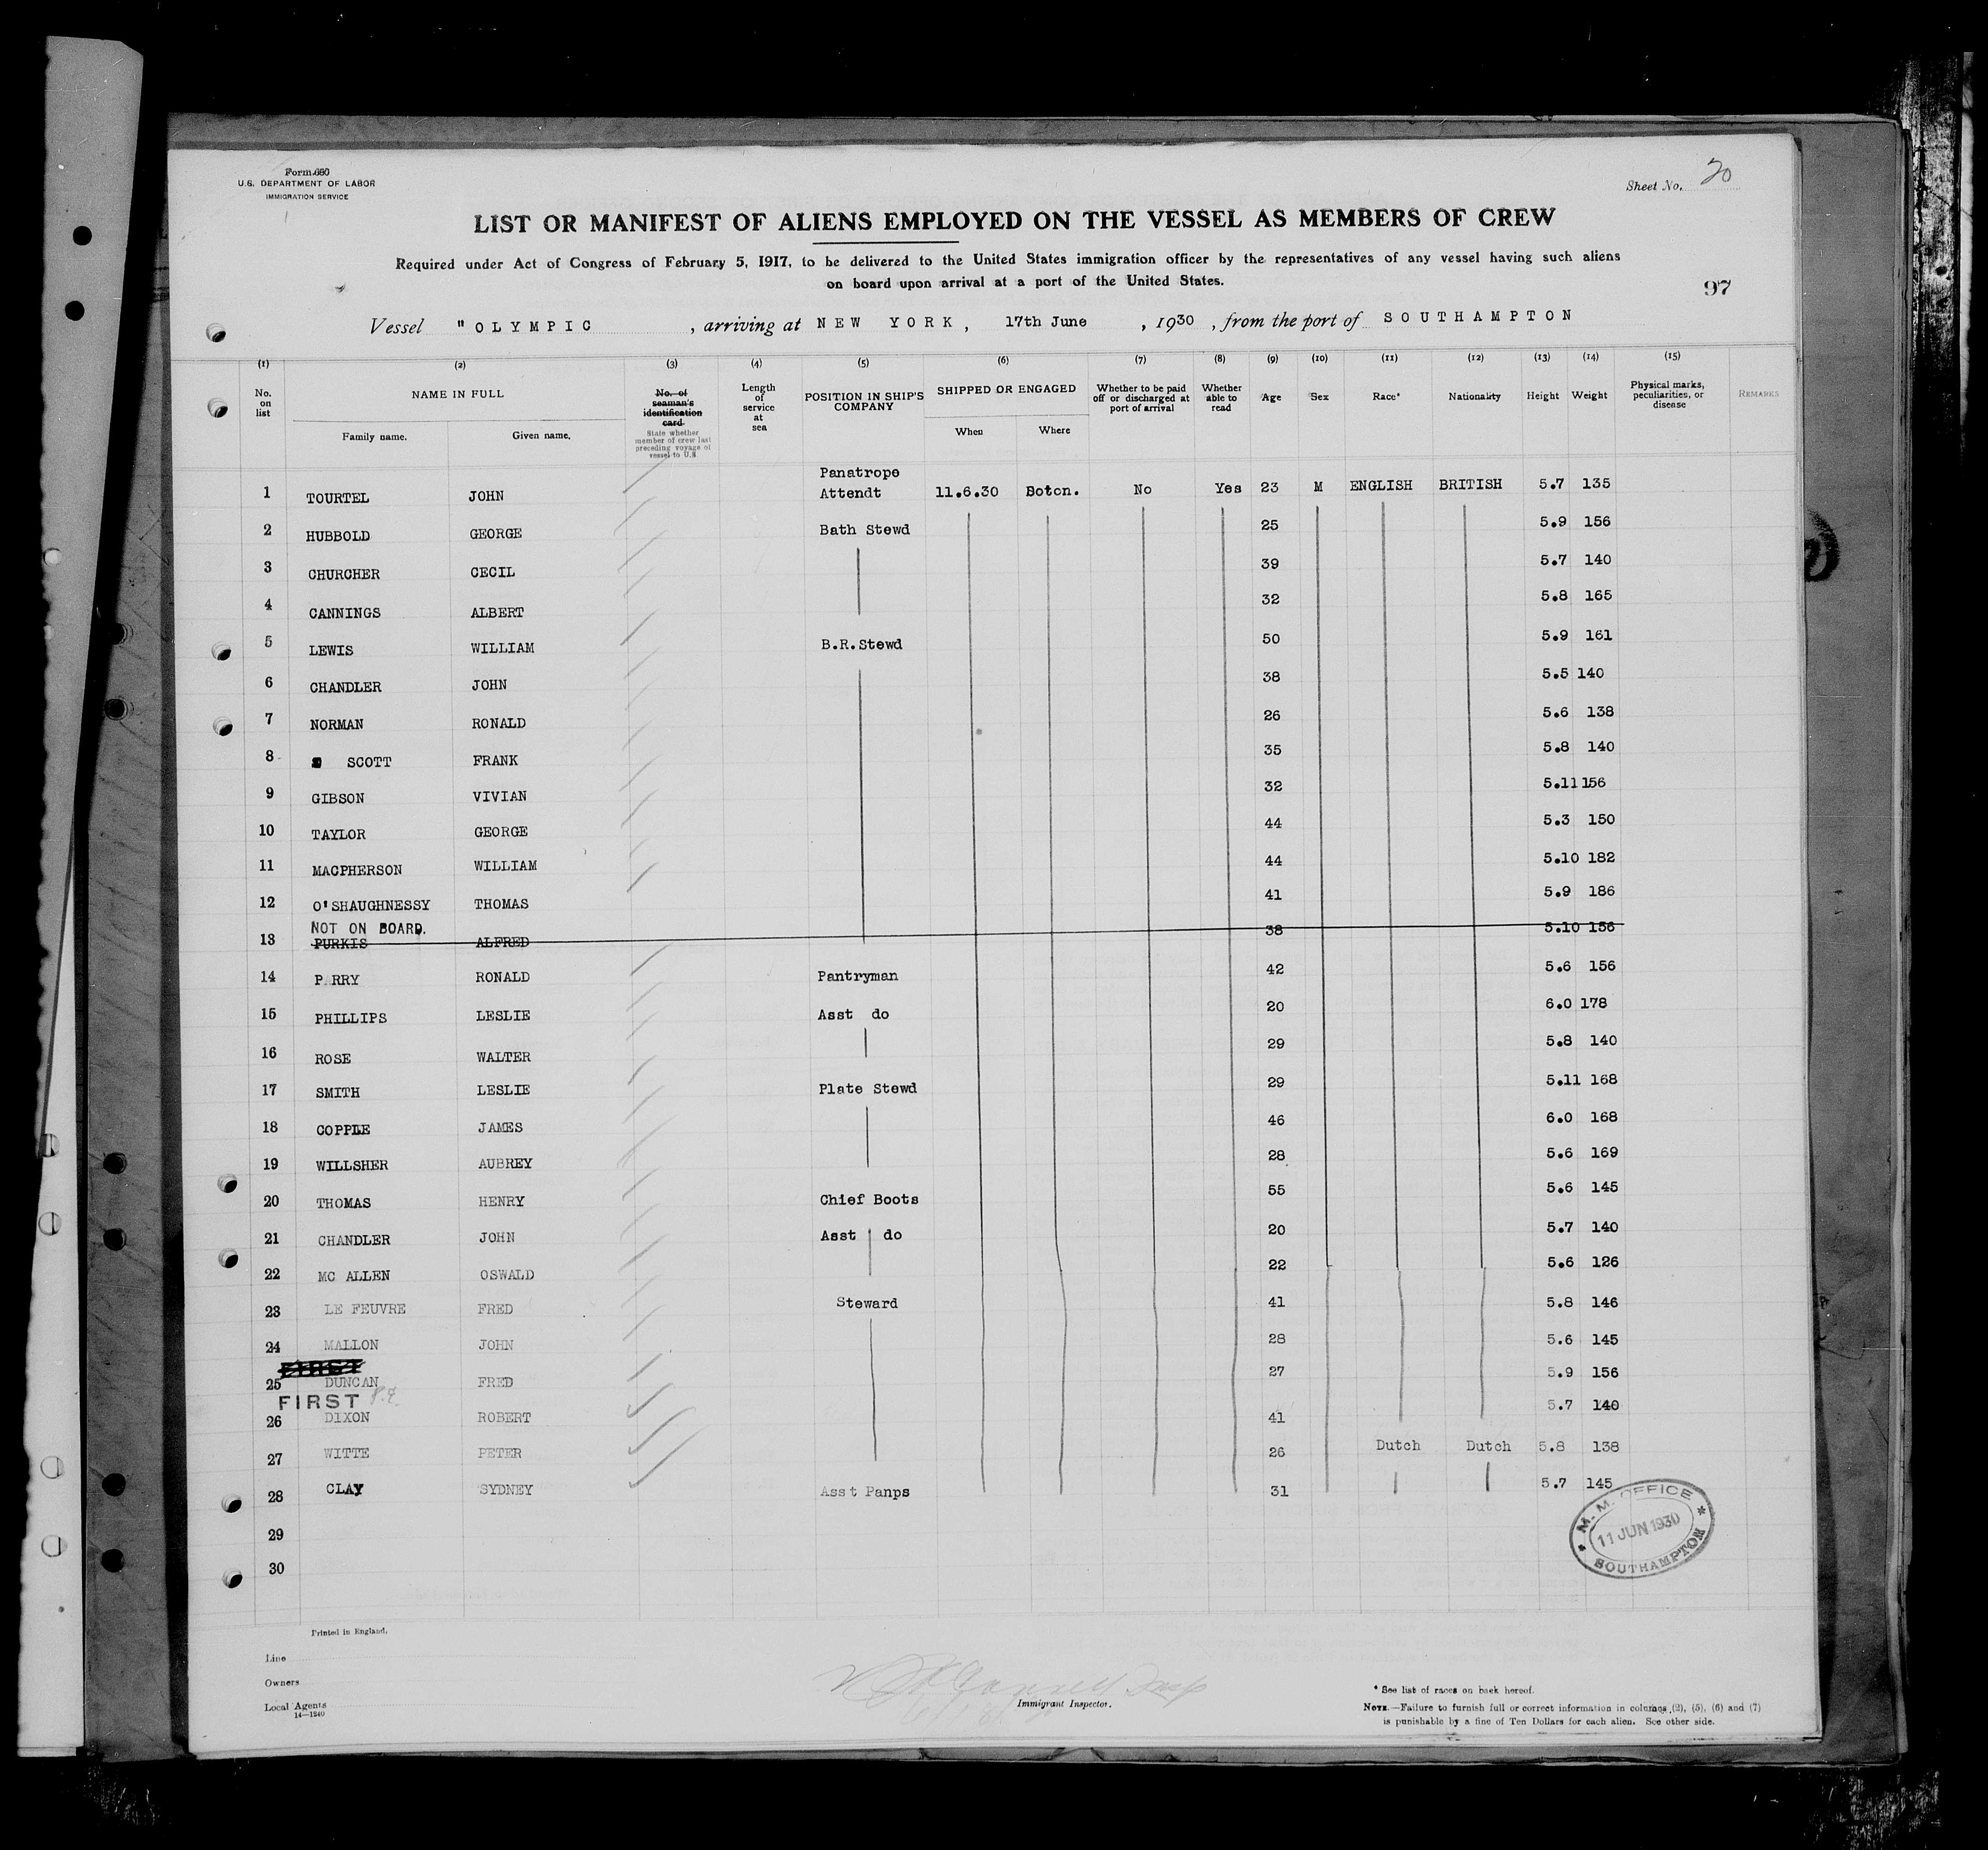 Form 680
U.S. DEPARTMENT OF LABOR
IMMIGRATION SERVICE
Sheet No. 20
LIST OR MANIFEST OF ALIENS EMPLOYED ON THE VESSEL AS MEMBERS OF CREW
Required under Act of Congress of February 5, 1917, to be delivered to the United States immigration officer by the representatives of any vessel having such aliens
on board upon arrival at a port of the United States.
97
Vessel "OLYMPIC , arriving at NEW YORK, 17th June , 1930 , from the port of SOUTHAMPTON
(1) (2) (3) (4) (5) (6) (7) (8) (9) (10) (11) (12) (13) (14) (15)
No. on list NAME IN FULL Family name. Given name. No. of seaman's identification card State whether member of crew last preceding voyage of vessel to U.S. Length of service at sea POSITION IN SHIP'S COMPANY SHIPPED OR ENGAGED When Where Whether to be paid off or discharged at port of arrival Whether able to read Age Sex Race* Nationality Height Weight Physical marks, peculiarities, or disease REMARKS
1 TOURTEL JOHN Panatrope Attendt 11.6.30 Soton. No Yes 23 M ENGLISH BRITISH 5.7 135
2 HUBBOLD GEORGE Bath Stewd 25 5.9 156
3 CHURCHER CECIL 39 5.7 140
4 CANNINGS ALBERT 32 5.8 165
5 LEWIS WILLIAM B.R.Stewd 50 5.9 161
6 CHANDLER JOHN 38 5.5 140
7 NORMAN RONALD 26 5.6 138
8 SCOTT FRANK 35 5.8 140
9 GIBSON VIVIAN 32 5.11 156
10 TAYLOR GEORGE 44 5.3 150
11 MACPHERSON WILLIAM 44 5.10 182
12 O'SHAUGHNESSY THOMAS 41 5.9 186
NOT ON BOARD.
13 PURKIS ALFRED 38 5.10 156
14 PARRY RONALD Pantryman 42 5.6 156
15 PHILLIPS LESLIE Asst do 20 6.0 178
16 ROSE WALTER 29 5.8 140
17 SMITH LESLIE Plate Stewd 29 5.11 168
18 COPPLE JAMES 46 6.0 168
19 WILLSHER AUBREY 28 5.6 169
20 THOMAS HENRY Chief Boots 55 5.6 145
21 CHANDLER JOHN Asst do 20 5.7 140
22 MC ALLEN OSWALD 22 5.6 126
23 LE FEUVRE FRED Steward 41 5.8 146
24 MALLON JOHN 28 5.6 145
FIRST
25 DUNCAN FRED 27 5.9 156
FIRST
26 DIXON ROBERT 41 5.7 140
27 WITTE PETER 26 Dutch Dutch 5.8 138
28 CLAY SYDNEY Asst Panps 31 5.7 145
29
30
M. M. OFFICE
11 JUN 1930
SOUTHAMPTON
Printed in England.
Line
Owners
Local Agents
14—1240
Immigrant Inspector.
* See list of races on back hereof.
NOTE.—Failure to furnish full or correct information in columns (2), (5), (6) and (7)
is punishable by a fine of Ten Dollars for each alien. See other side.